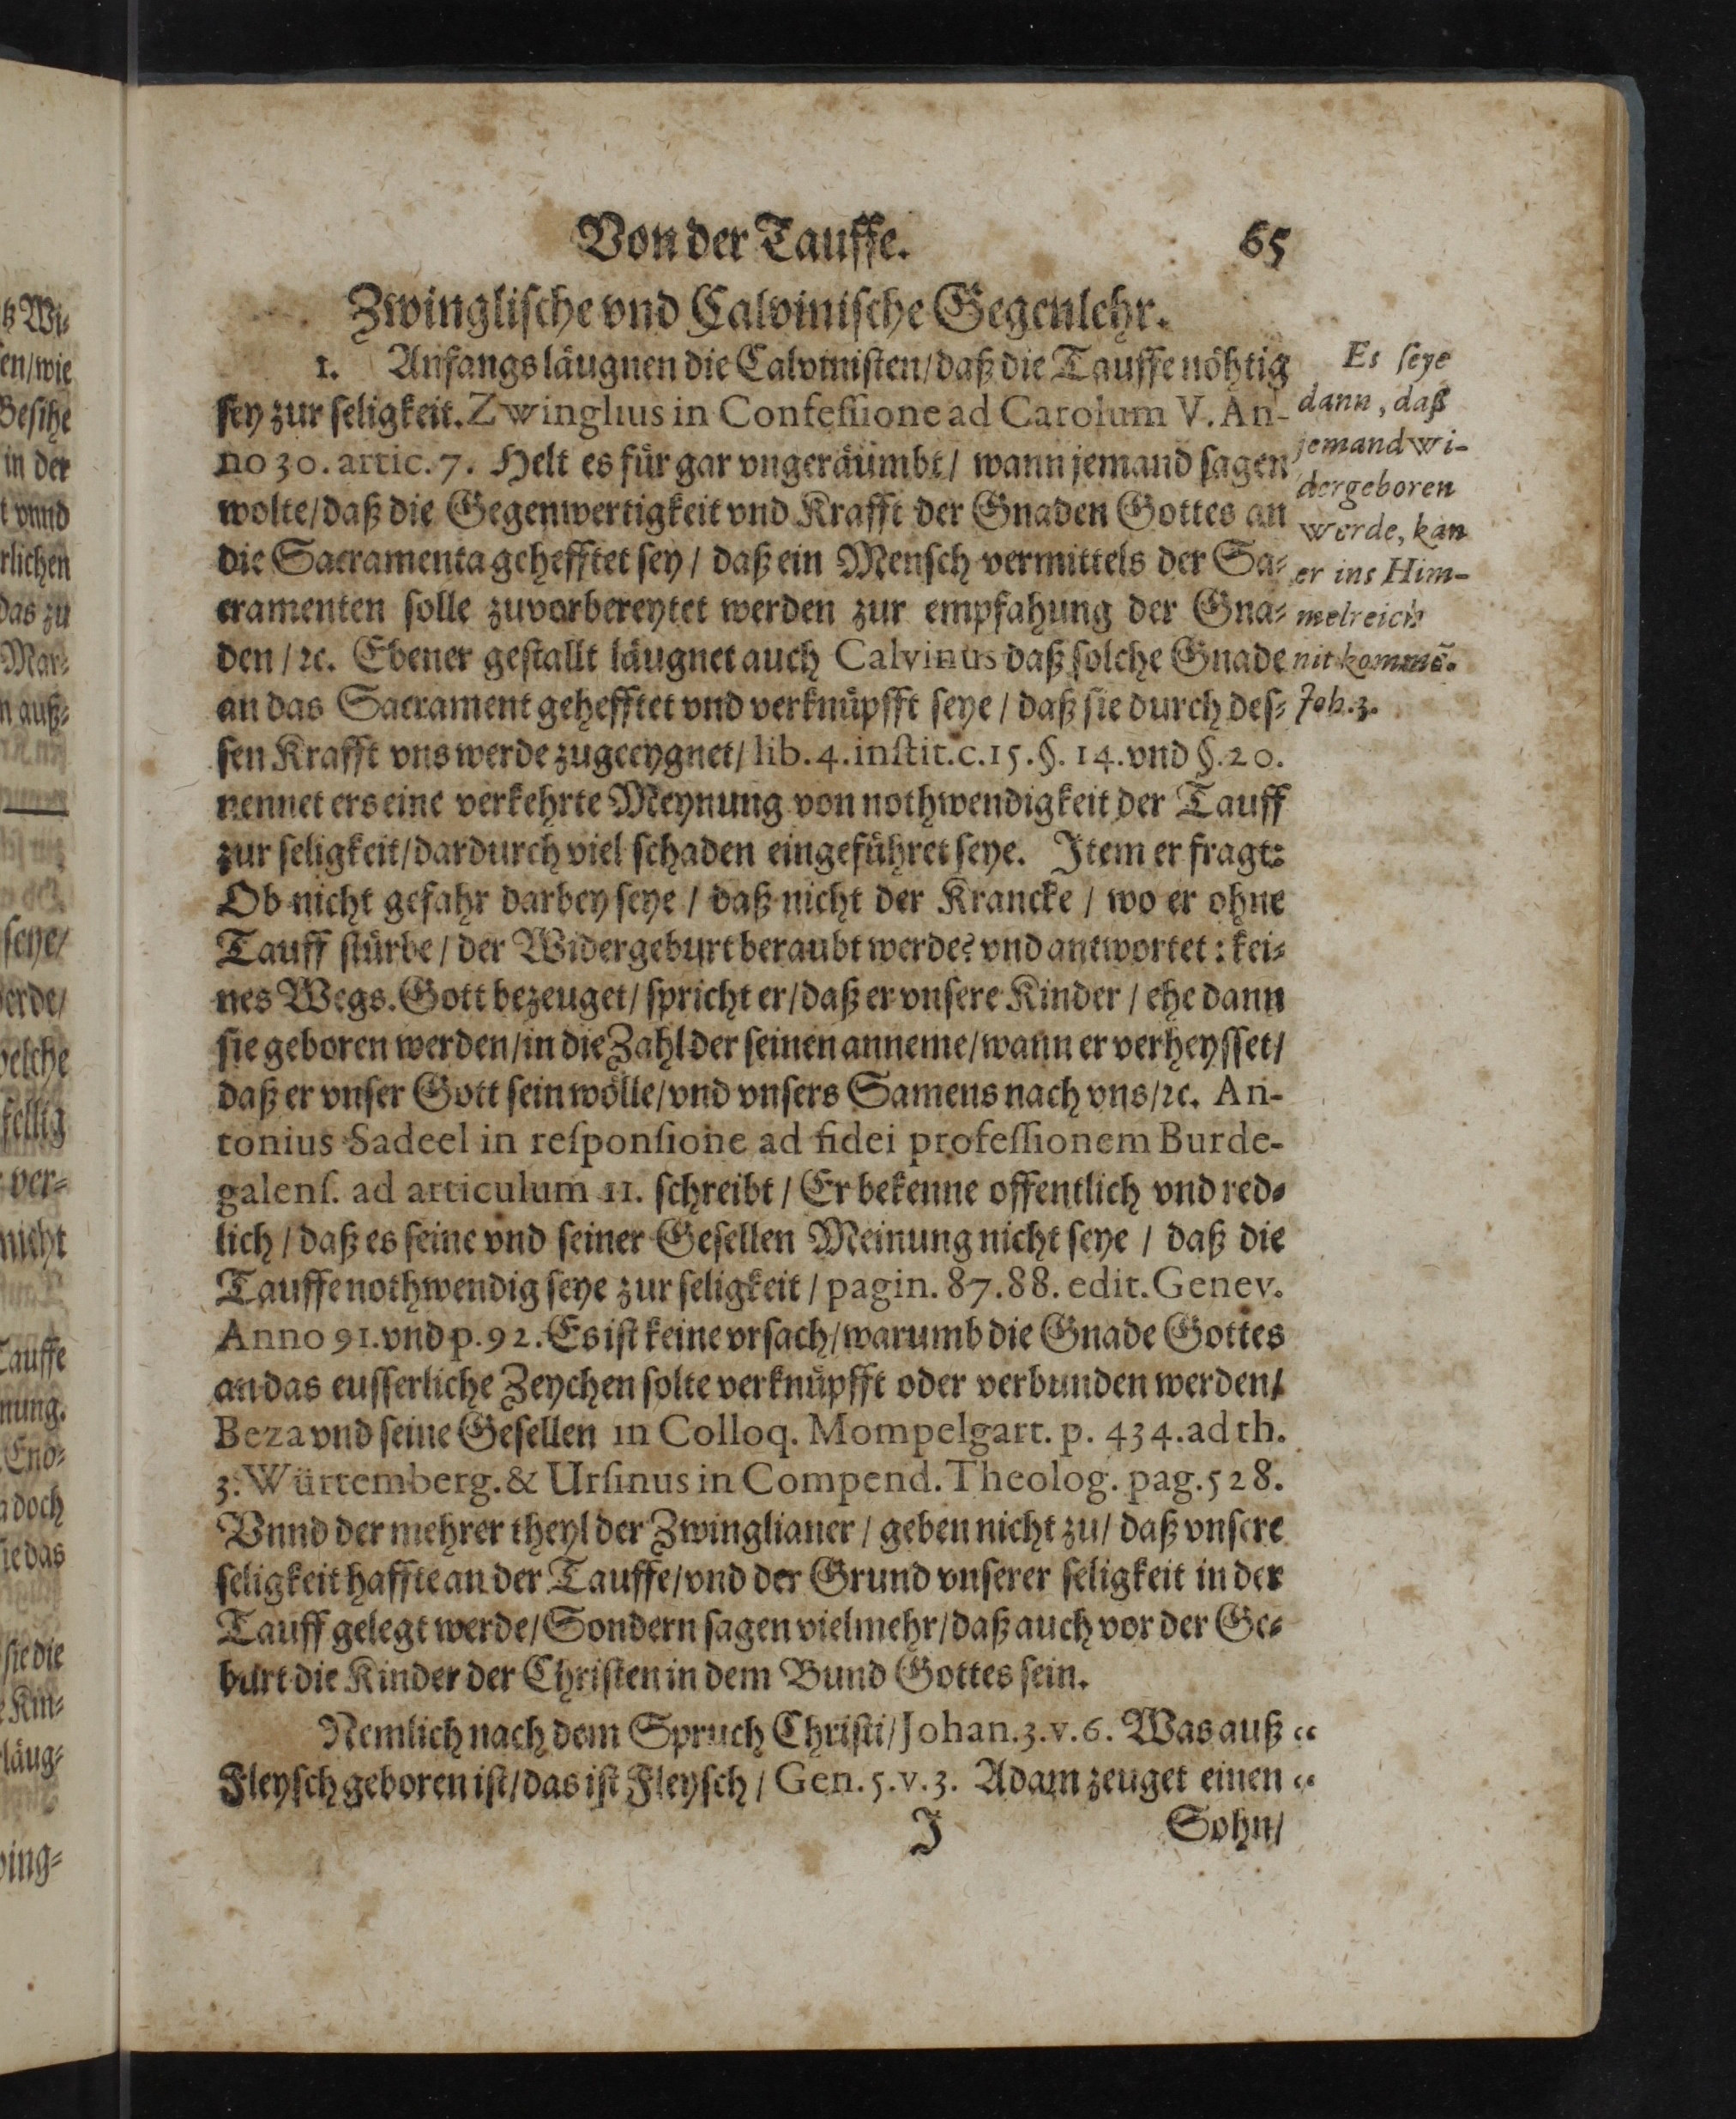 Von der Tauffe. 65
Zwinglische vnd Calvinische Gegenlehr.
1. Anfangs läugnen die Calvinisten/ daß die Tauffe nöhtig
sey zur seligkeit. Zwinglius in Confessione ad Carolum V. An-
no 30. artic. 7. Helt es für gar vngeräumbt/ wann jemand sagen
wolte/ daß die Gegenwertigkeit vnd Krafft der Gnaden Gottes an
die Sacramenta gehefftet sey/ daß ein Mensch vermittels der Sa-
cramenten solle zuvorbereytet werden zur empfahung der Gna-
den/ ꝛc. Ebener gestallt läugnet auch Calvinus daß solche Gnade
an das Sacrament gehefftet vnd verknüpfft seye/ daß sie durch des-
sen Krafft vns werde zugeeygnet/ lib. 4. instit. c. 15. §. 14. vnd §. 20.
nennet ers eine verkehrte Meynung von nothwendigkeit der Tauff
zur seligkeit/ dardurch viel schaden eingeführet seye. Item er fragt:
Ob nicht gefahr darbey seye/ daß nicht der Krancke/ wo er ohne
Tauff stürbe/ der Widergeburt beraubt werde? vnd antwortet: kei-
nes Wegs. Gott bezeuget/ spricht er/ daß er vnsere Kinder/ ehe dann
sie geboren werden/ in die Zahl der seinen anneme/ wann er verheysset/
daß er vnser Gott sein wölle/ vnd vnsers Samens nach vns/ ꝛc. An-
tonius Sadeel in responsione ad fidei professionem Burde-
galens. ad articulum 11. schreibt/ Er bekenne offentlich vnd red-
lich/ daß es seine vnd seiner Gesellen Meinung nicht seye/ daß die
Tauffe nothwendig seye zur seligkeit/ pagin. 87. 88. edit. Genev.
Anno 91. vnd p. 92. Es ist keine vrsach/ warumb die Gnade Gottes
an das eusserliche Zeychen solte verknüpfft oder verbunden werden/
Beza vnd seine Gesellen in Colloq. Mompelgart. p. 434. ad th.
3. Würtemberg. & Ursinus in Compend. Theolog. pag. 528.
Vnnd der mehrer theyl der Zwinglianer/ geben nicht zu/ daß vnsere
seligkeit haffte an der Tauffe/ vnd der Grund vnserer seligkeit in der
Tauff gelegt werde/ Sondern sagen vielmehr/ daß auch vor der Ge-
burt die Kinder der Christen in dem Bund Gottes sein.
Nemlich nach dem Spruch Christi/ Johan. 3. v. 6. Was auß “
Fleysch geboren ist/ das ist Fleysch/ Gen. 5. v. 3. Adam zeuget einen “
J Sohn/
Es seye
dann, daß
jemand wi-
dergeboren
werde, kan
er ins Him-
melreich
nit kommẽ.
Joh. 3.